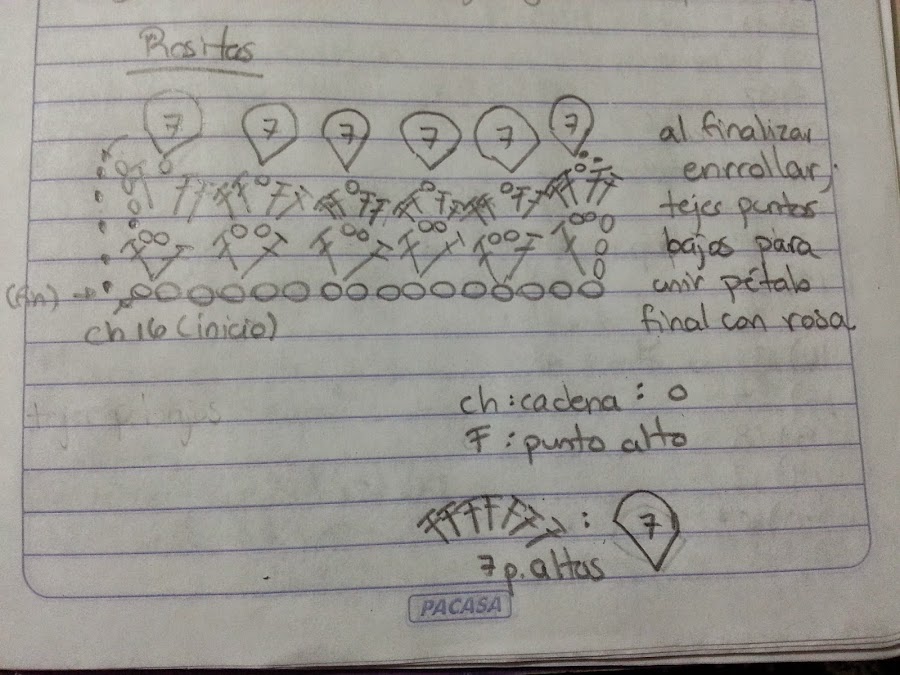 Rositas
7 7 7 7 7 7
al finalizar
enrrollar,
tejer puntos
bajos para
unir pétalo
final con rosa
(fin)
ch 16 (inicio)
ch : cadena : o
F : punto alto
: 7
7 p. altos
PACASA